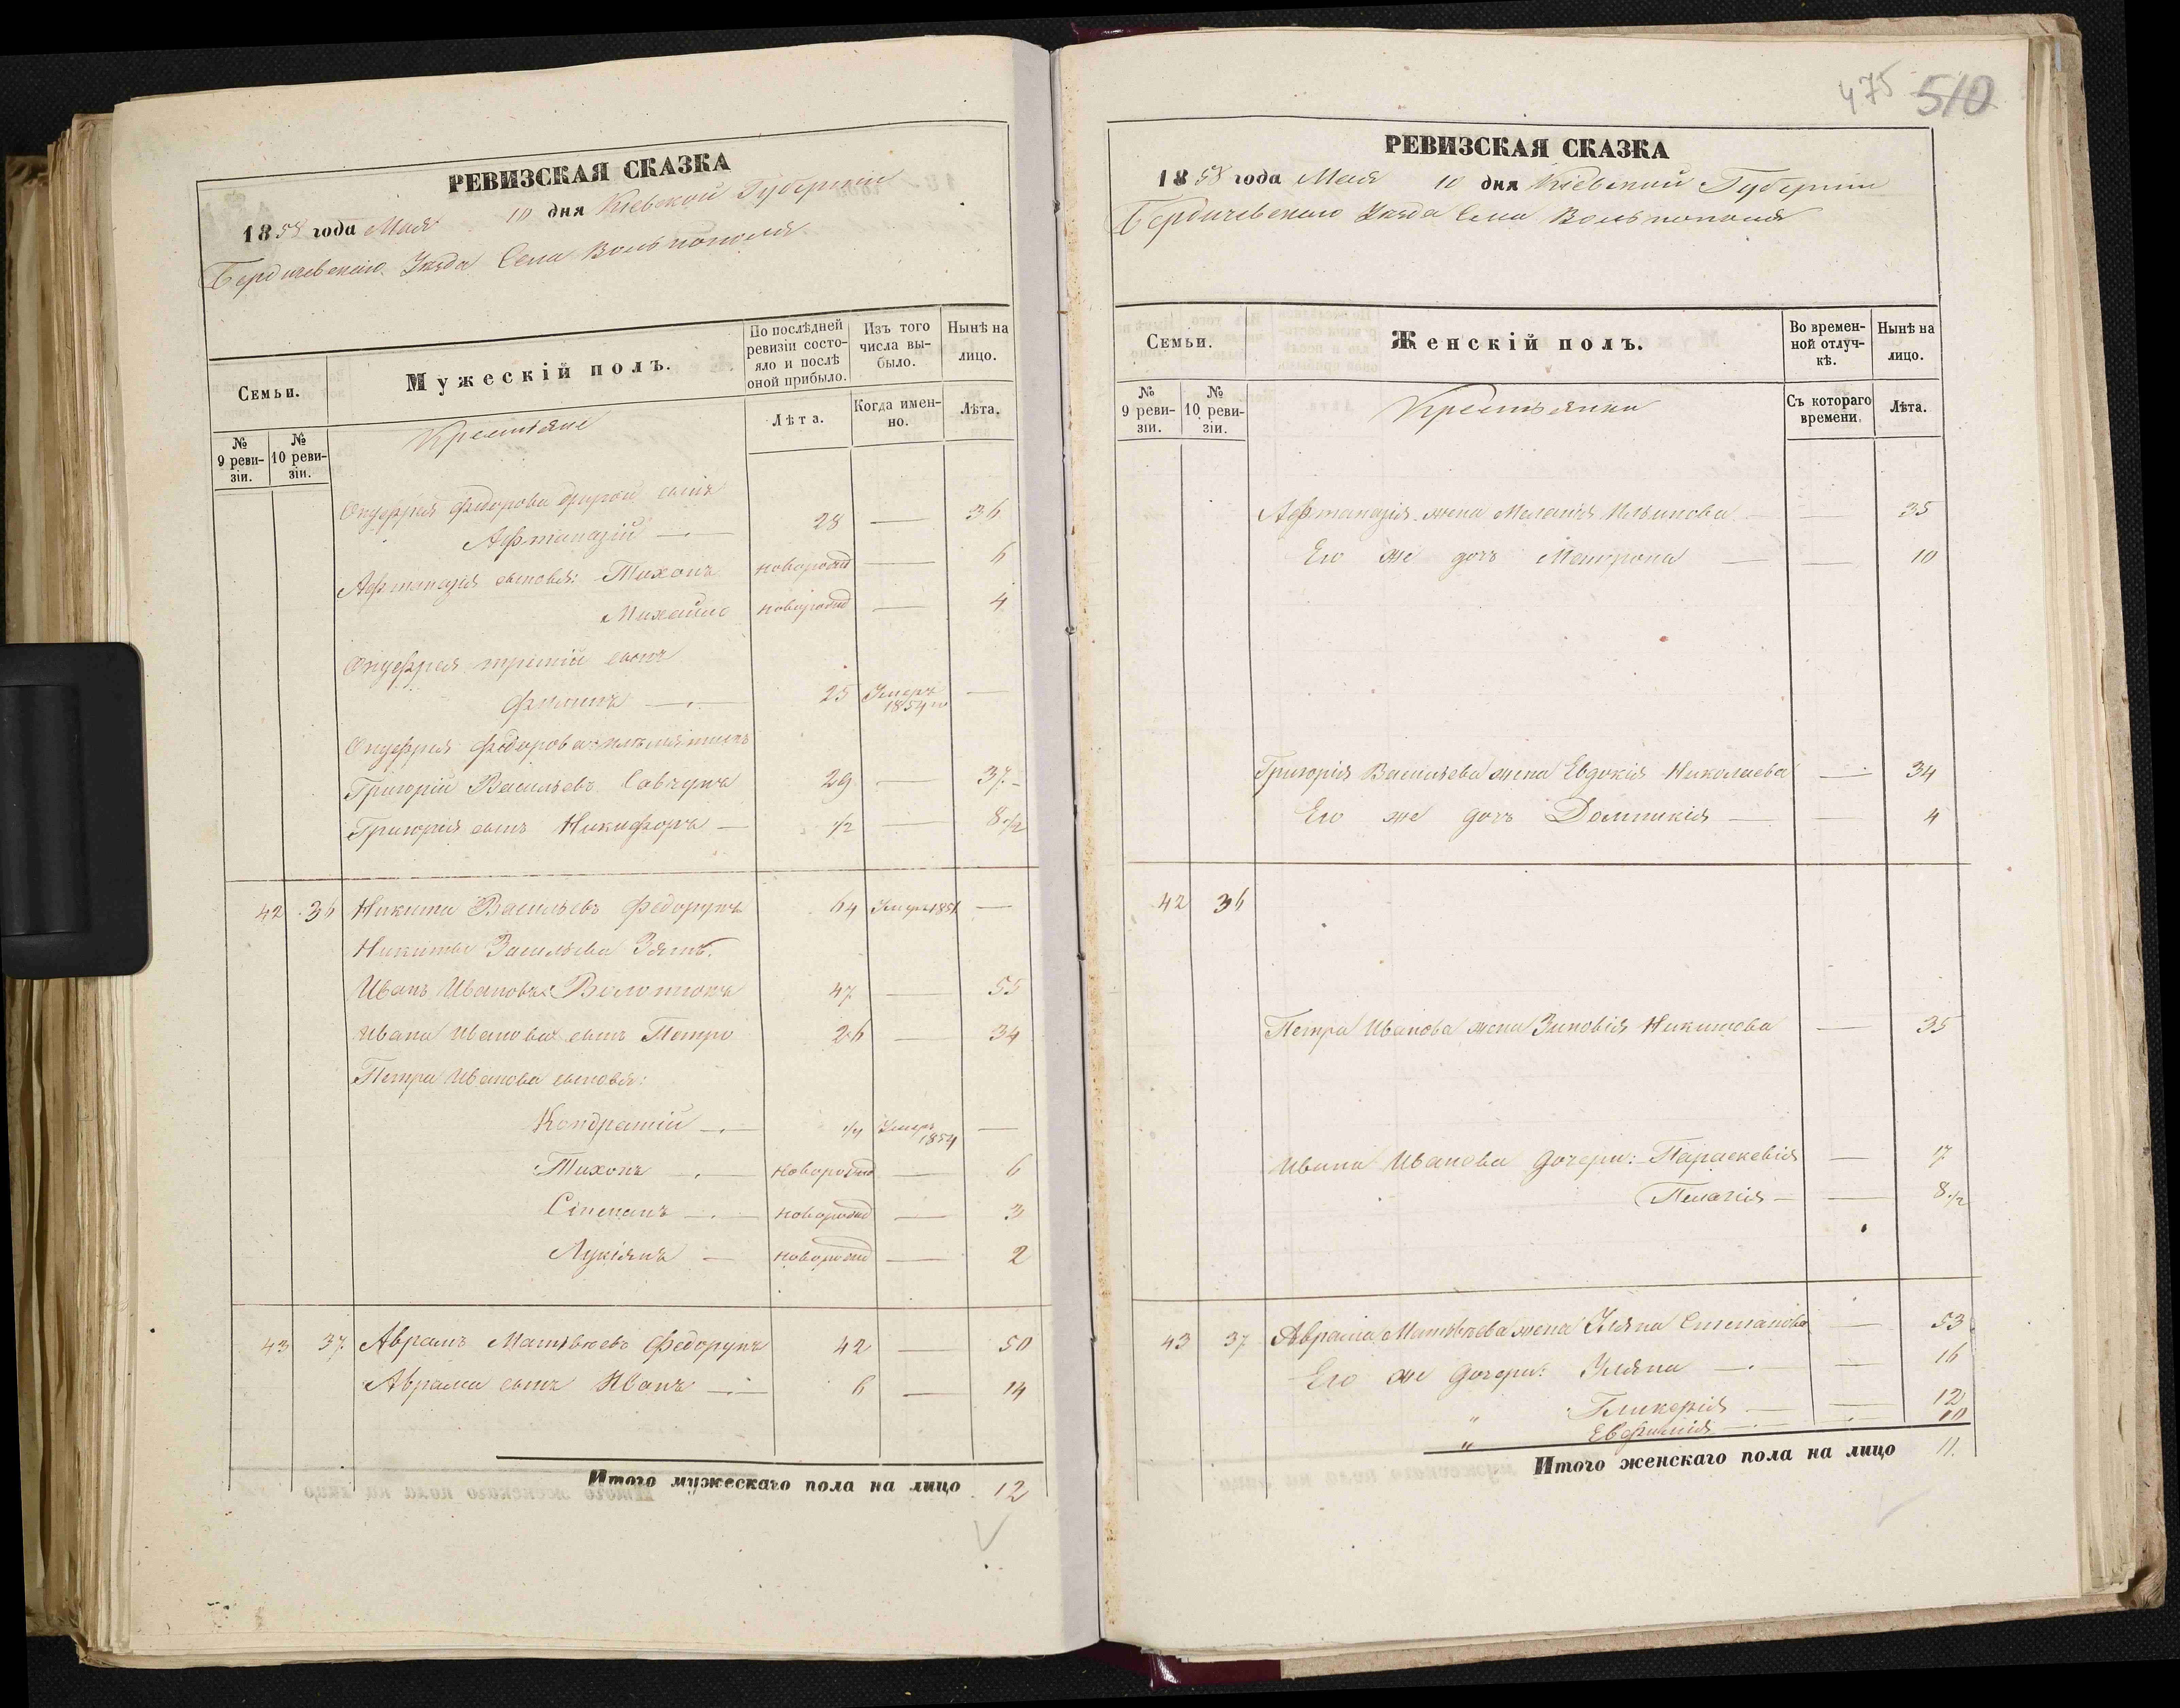 РЕВИЗСКАЯ СКАЗКА
1858 года Мая 10 дня Кіевской Губерніи
Бердичевскаго Уезда Села Вольнополя
Семьи.
Мужескій полъ.
По послѣдней ревизіи состояло и послѣ оной прибыло.
Изъ того числа выбыло.
Нынѣ на лицо.
№ 9 ревизіи.
№ 10 ревизіи.
Крестьяне
Лѣта.
Когда именно.
Лѣта.
Онуфрія Федорова другой сынъ
Афтаназій — 28 — 36
Афтаназія сыновья: Тихонъ новорожд — 6
Михайло новорожд — 4
Онуфрія третій сынъ
Филипъ — 25 Умеръ 1854 го —
Онуфрія Федорова племянникъ
Григорій Васильевъ Савчукъ 29 — 37
Григорія сынъ Никифоръ — 1/2 — 8 1/2
42 36 Никита Васильевъ Федорукъ 64 Умеръ 1851 —
Никиты Васильева Зять.
Иванъ Ивановъ 47 — 55
Ивана Иванова сынъ Петро 26 — 34
Петра Иванова сыновья:
Кондратій — 1/4 Умеръ 1854 —
Тихонъ — новорожд — 6
Степанъ — новорожд — 3
Лукіянъ — новорожд — 2
43 37 Аврамъ Матвѣевъ Федорукъ 42 — 50
Аврама сынъ Иванъ — 6 — 14
Итого мужескаго пола на лицо 12
475 510
РЕВИЗСКАЯ СКАЗКА
1858 года Мая 10 дня Кіевской Губерніи
Бердичевскаго Уезда Села Вольнополя
Семьи.
Женскій полъ.
Во временной отлучкѣ.
Нынѣ на лицо.
№ 9 ревизіи.
№ 10 ревизіи.
Крестьянки
Съ котораго времени.
Лѣта.
Афтаназія жена Меланія Ильинова — 35
Его же дочь Матрона — — 10
Григорія Васильева жена Евдокія Николаева — 34
Его же дочь Домникія — — 4
42 36
Петра Иванова жена Зиновія Никитова — 35
Ивана Иванова дочери: Параскевія — 17
Пелагія — — 8 1/2
43 37 Аврама Матвѣева жена Уляна Степанова — 53
Его же дочери: Уляна — — 16
" Гликерія — — 12
" Евфимія — — 10
Итого женскаго пола на лицо 11.